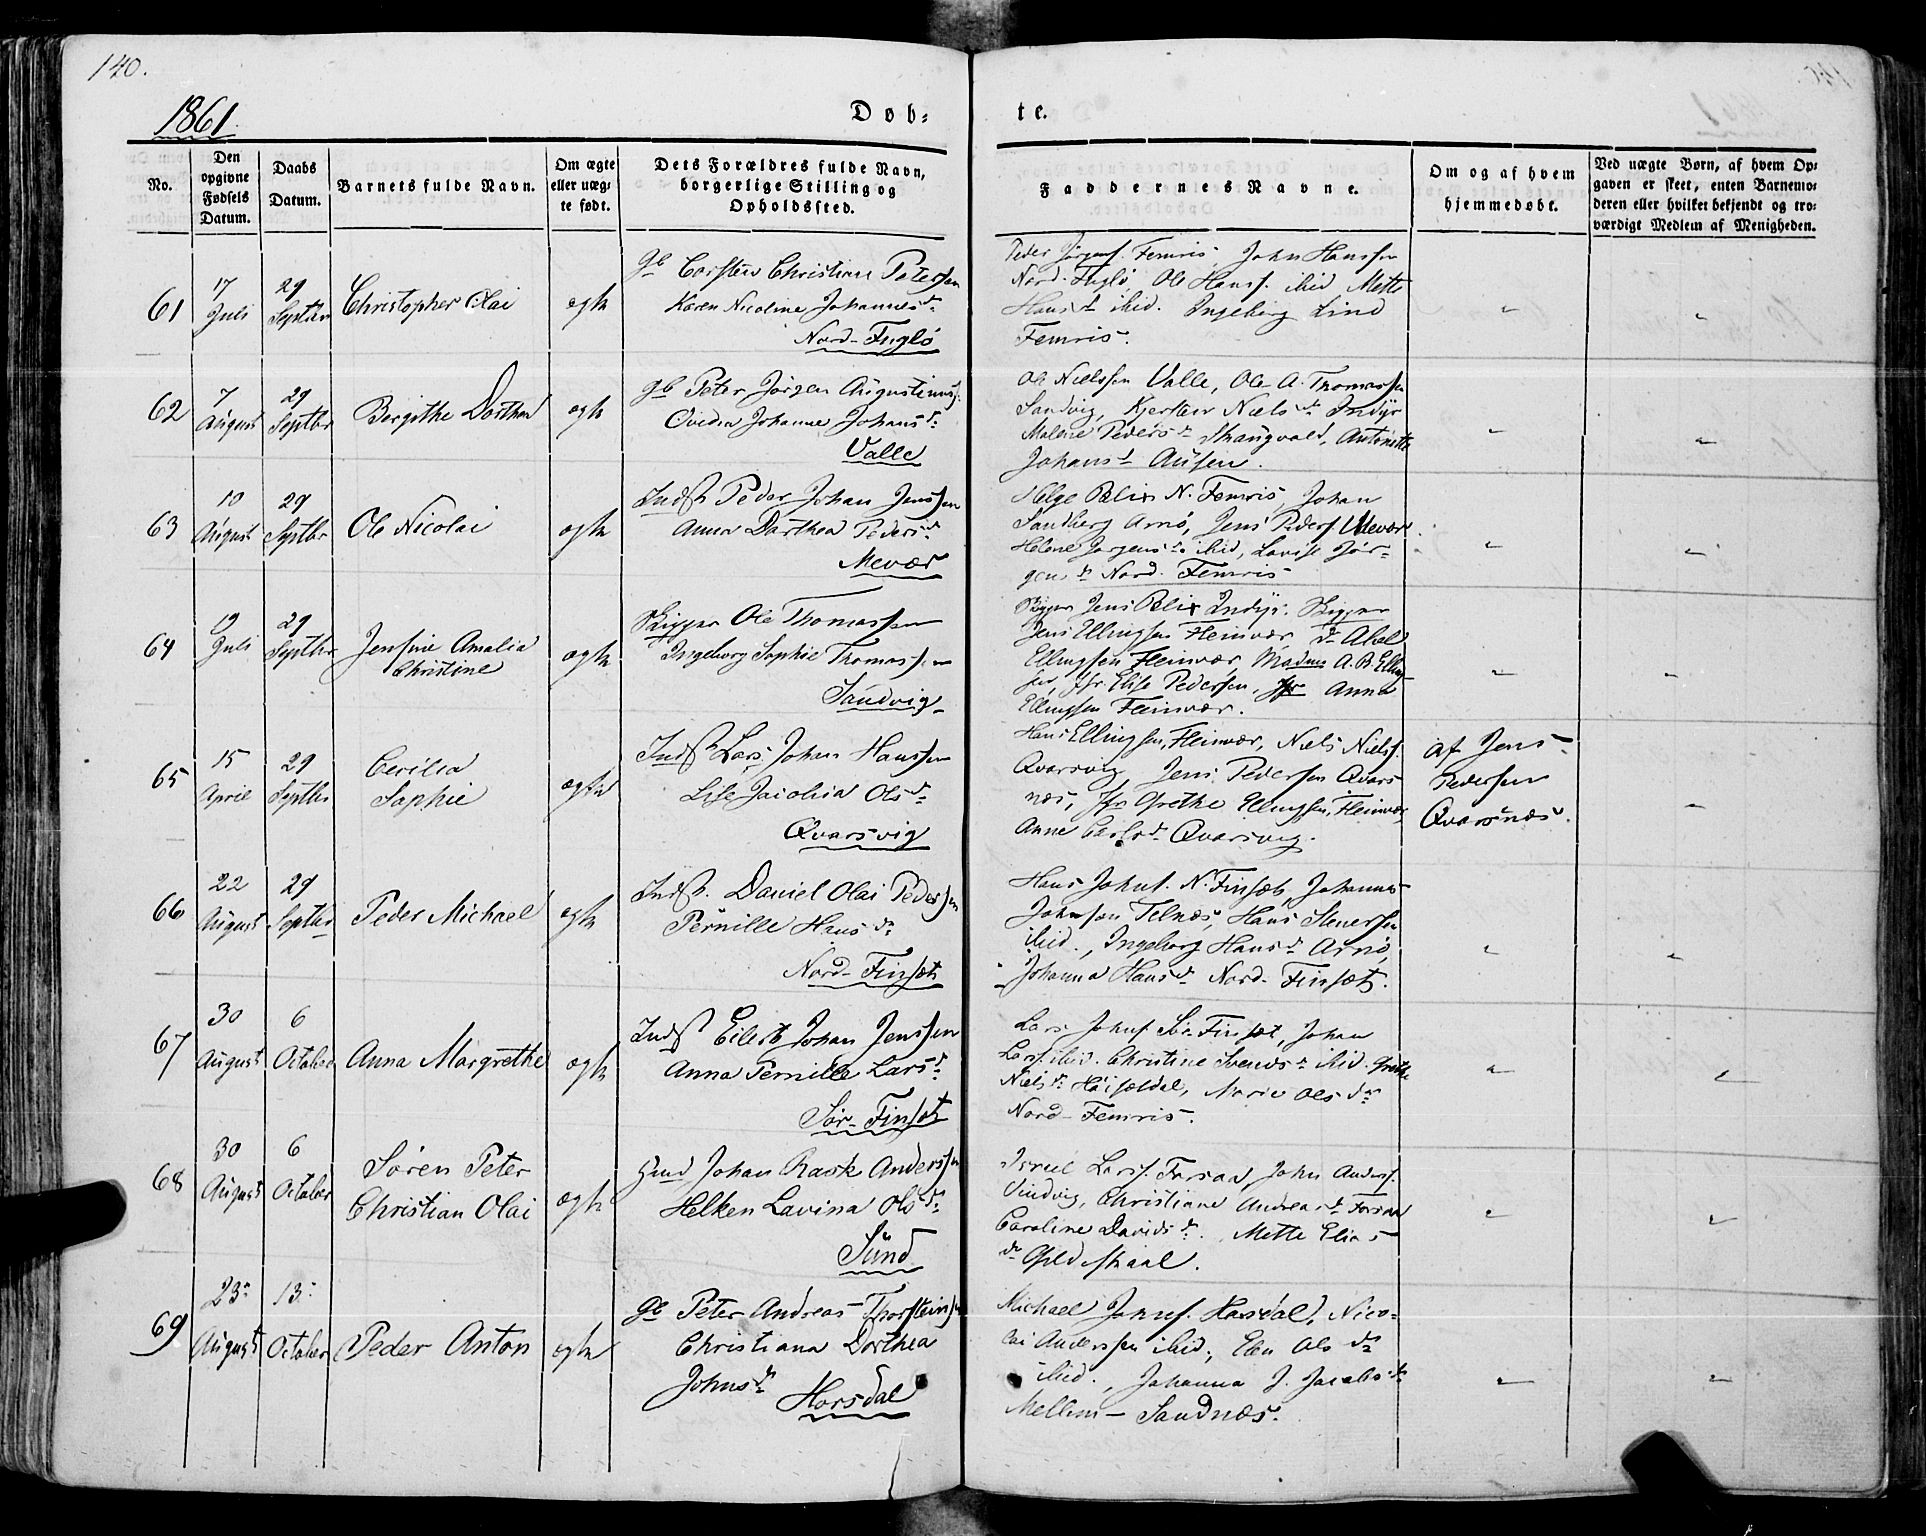 140.
1861.
Døb-
te.
No.
Den opgivne Fødsels Datum.
Daabs Datum.
Barnets fulde Navn.
Om ægte eller uæg-te født.
Dets Forældres fulde Navn, borgerlige Stilling og Opholdssted.
Faddernes Navne.
Om og af hvem hjemmedøbt.
Ved uægte Børn, af hvem Op-gaven er skeet, enten Barnemo-deren eller hvilket bekjendt og tro-værdigt Medlem af Menigheden.
61
17 Juli
29 Septbr
Christopher Olai
ægte
Gb Carsten Christian Petersen
Karen Nicoline Johannesdr
Nord-Fuglø
Peder Jørgens. Femris, John Hanssen
Nord-Fuglø, Ole Hanss. ibid Mette
Hansd ibid. Ingeborg Lind
Femris.
62
7 August
29 Septbr
Bergithe Dorthea
ægte
gb Peter Jørgen Augustinuss.
Ovedia Johanne Johansdr
Valle
Ole Nielssen Valle, Ole A. Thomassen
Sandvig, Kjersten Nielsdr Indyr
Malene Pedersdr Skaugvold, Antonette
Johansd Ausen.
63
10 August
29 Septbr
Ole Nicolai
ægte
Indst Peder Johan Jenssen
Anna Dorthea Pedersdr
Mevær
Helge Blix N. Femris, Johan
Sandberg Arnø, Jens Peders. Mevær
Helene Jørgensdr ibid, Lovise Jør-
gensdr Nord-Femris
64
19 Juli
29 Septbr
Jensine Amalia
Christine
ægte
Skipper Ole Thomassen
Ingeborg Sophie Thomassen
Sandvig
Skipper Jens Blix Indyr. Skipper
Jens Ellingsen Fleinvær do Abel
Ellingsen Fleinvær, Madme A. B. Elling-
sen, Jfr. Elise Pedersen, Jfr Anna
Ellingsen Fleinvær.
65
15 April
29 Septbr
Cecilia
Sophie
ægte
Indst Lars Johan Hanssen
Lise Jacobia Olsdr
Qvarsvig
Hans Ellingsen, Fleinvær, Niels Nielss.
Qvarsvig, Jens Pedersen Qvars
næs, Jfr Grethe Ellingsen, Fleinvær,
Anne Carlsdr Qvarsvig.
af Jens
Pedersen
Qvarsnæs.
66
22 August
29 Septbr
Peder Michael
ægte
Indst. Daniel Olai Pedersen
Pernille Hansdr
Nord-Finsæt
Hans Johns. N. Finsæt, Johannes
Johnsen Telnæs, Hans Stenersen
ibid., Ingeborg Hansdr Arnø,
Johanna Hansdr Nord-Finsæt.
67
30 August
6 October
Anna Margrethe
ægte
Indst Eilert Johan Jenssen
Anna Pernille Larsdr
Sør-Finsæt
Lars Johns Sør-Finsæt, Johan
Larss. ibid. Christine Svendsdr ibid. Grethe
Nielsdr Høiseldal, Marie Olsdr
Nord-Femris.
68
30 August
6 October
Søren Peter
Christian Olai
ægte
Johan Rask Anderssen
Helken Lavina Olsdr
Sund
Larss. Forsaa, John Anderss.
Vindvig, Christiane Andreasdr Forsaa
Caroline Davidsdr. Mette Elias
dr Gildeskaal.
69
23 August
13 October
Peder Anton
ægte
Gb Peter Andreas Thorsteinsen
Christiana Dorthea
Johnsdr Horsdal
Michael Johns. Horsdal, Nico-
lai Anderssen ibid., Elen Olsdr
ibid., Johanna J. Jacobsdr
Mellem-Sandnæs.